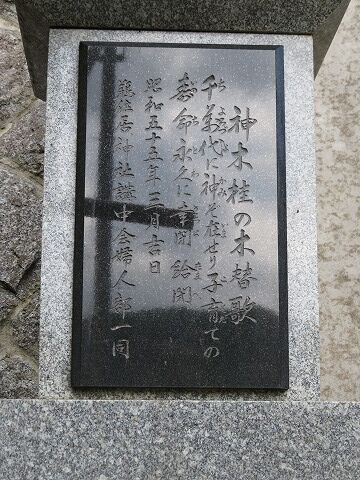 神木桂の木替歌
千鞍代に神ぞ在せり子育ての
寿命永久に幸聞給聞
昭和五十五年三月吉日
龍住居神社講中会婦人部一同